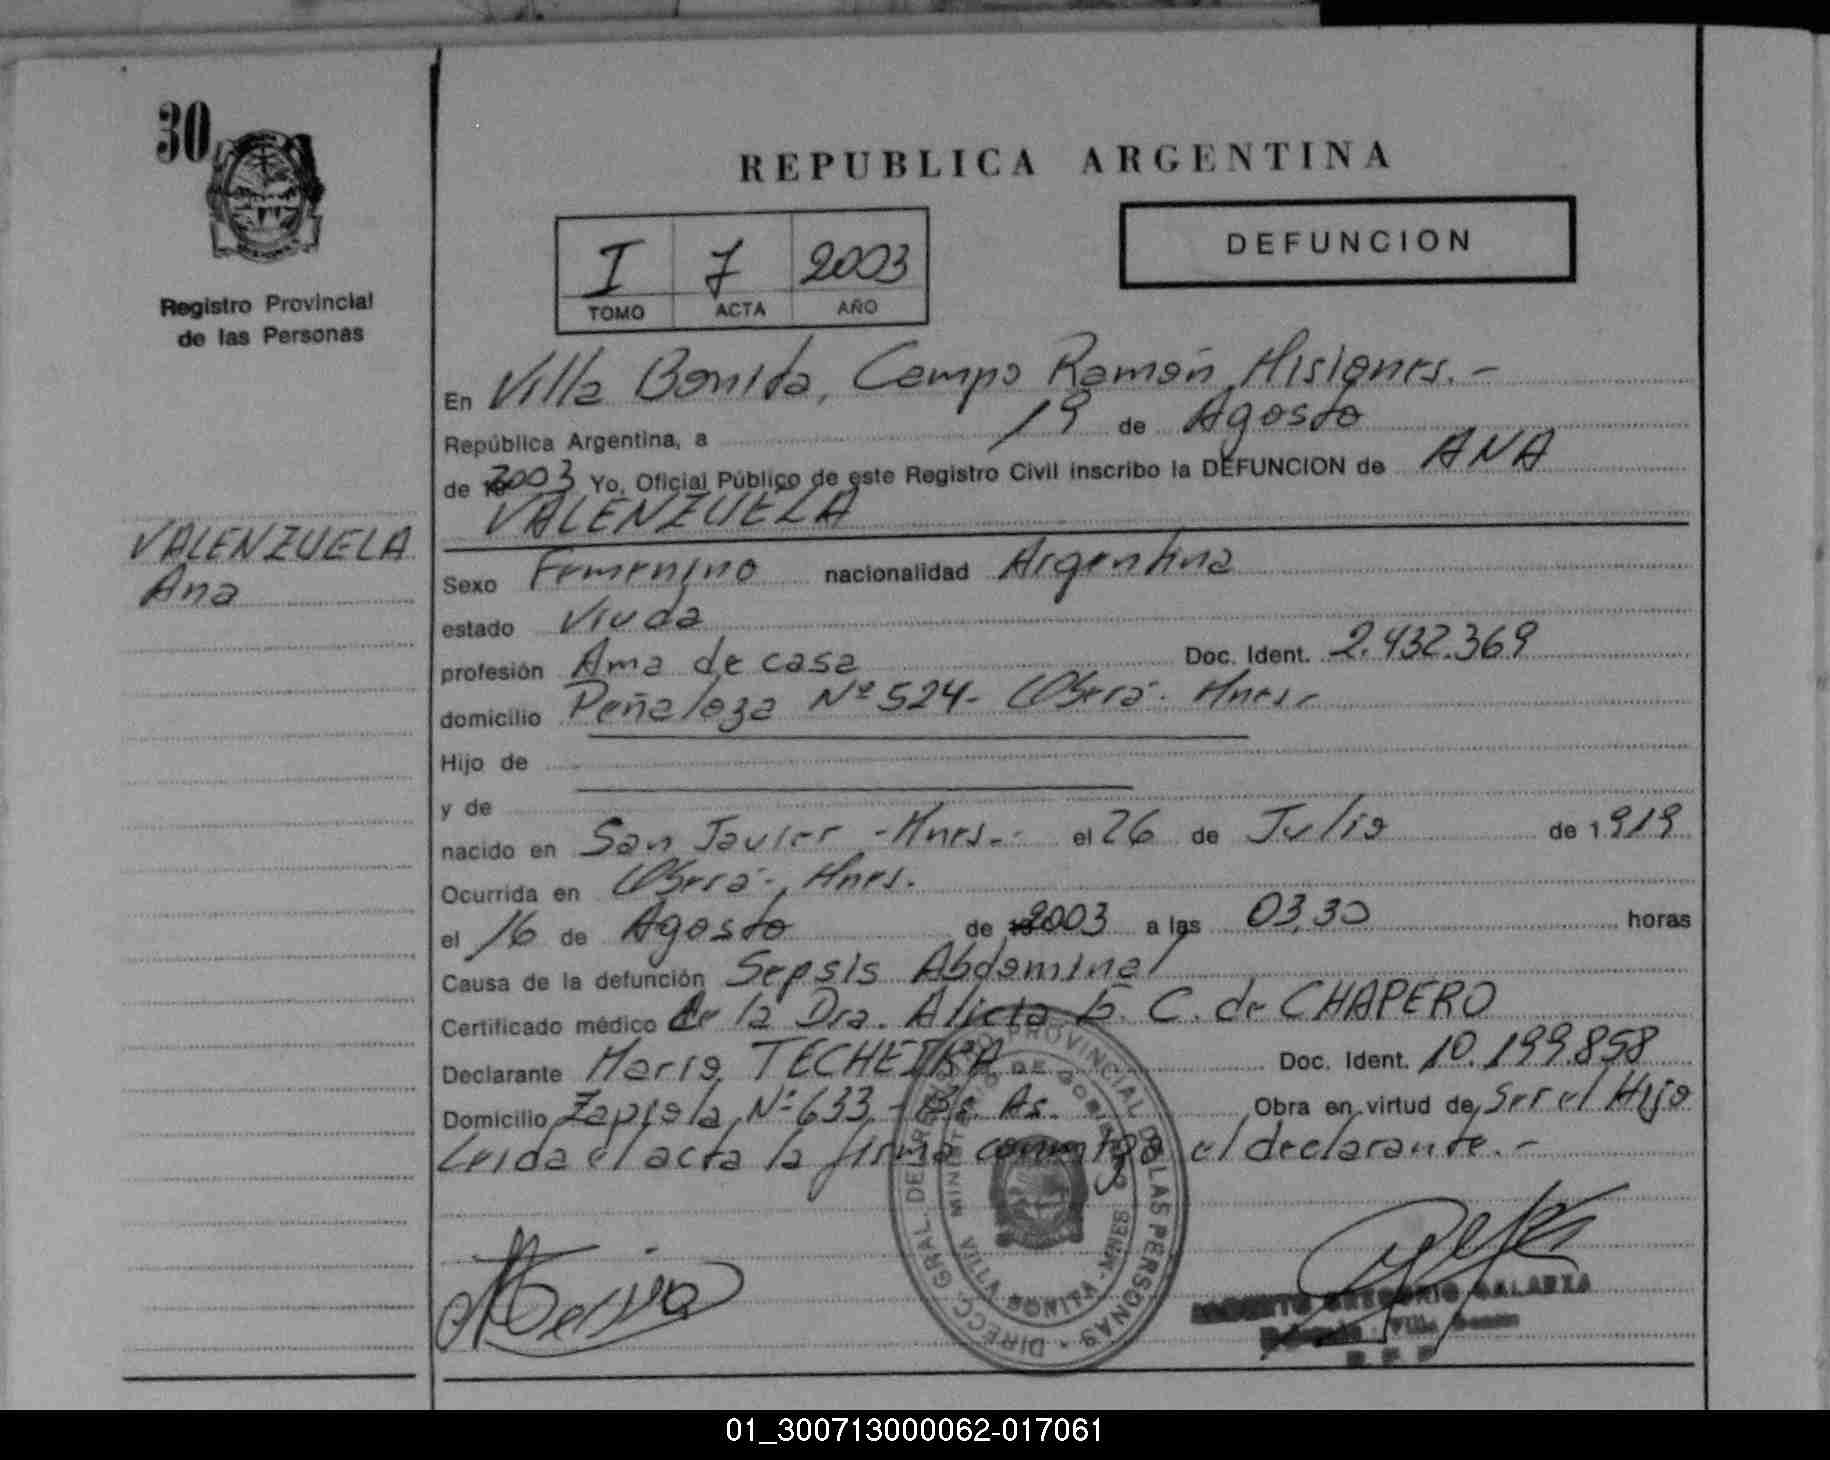 30
Registro Provincial
de las Personas
VALENZUELA
Ana
REPUBLICA ARGENTINA
I 7 2003
TOMO ACTA AÑO
DEFUNCION
En Villa Bonita, Campo Ramón, Misiones.-
República Argentina, a 19 de Agosto
de 2003 Yo, Oficial Público de este Registro Civil inscribo la DEFUNCION de ANA
VALENZUELA
Sexo Femenino nacionalidad Argentina
estado Viuda
profesión Ama de casa Doc. Ident. 2.432.369
domicilio Peñaloza Nº 524- Oberá- Mnes.
Hijo de
y de
nacido en San Javier - Mnes.- el 26 de Julio de 1919
Ocurrida en Oberá-, Mnes.
el 16 de Agosto de 2003 a las 03,30 horas
Causa de la defunción Sepsis Abdominal
Certificado médico de la Dra. Alicia C. de CHAPERO
Declarante Mario, TECHEIRA Doc. Ident. 10.199.858
Domicilio Zapiola, Nº 633 - Bs. As. Obra en virtud de, Ser el Hijo
Leida el acta la firma conmigo el declarante.-
DIRECC. GRAL. DEL REGISTRO PROVINCIAL DE LAS PERSONAS
MINISTERIO DE GOBIERNO
VILLA BONITA - MNES
GREGORIO GALARZA
Villa Bonita
01_300713000062-017061